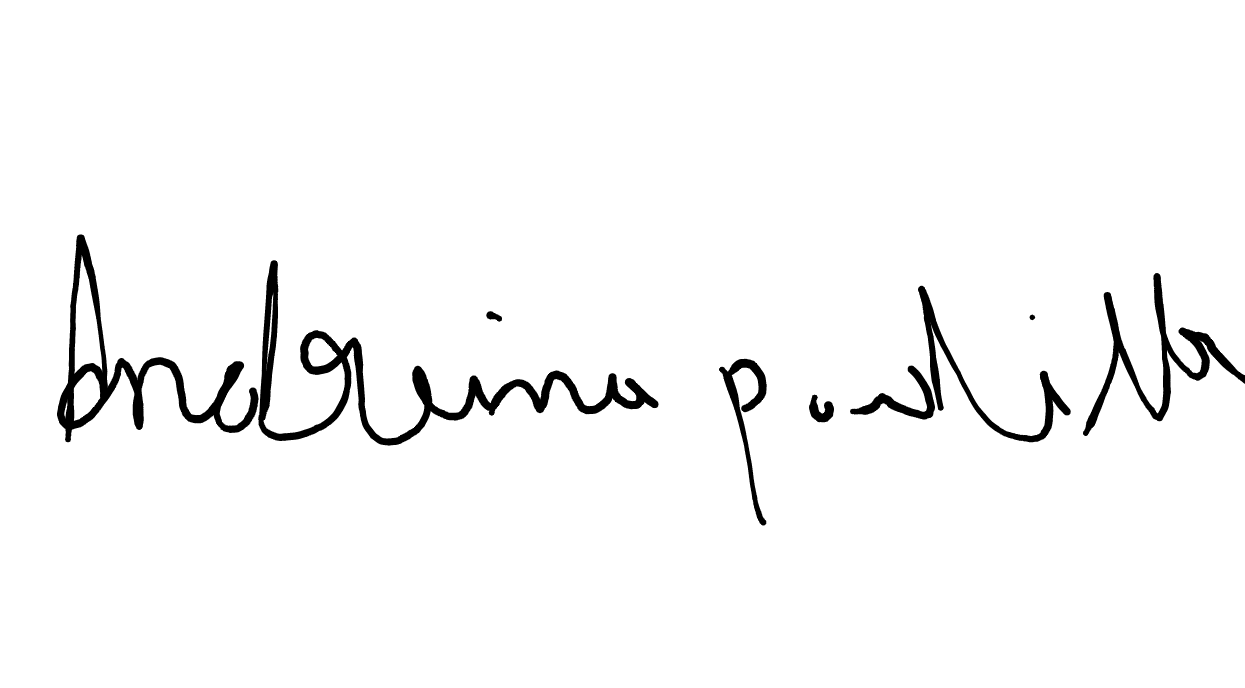 Andreina padilla